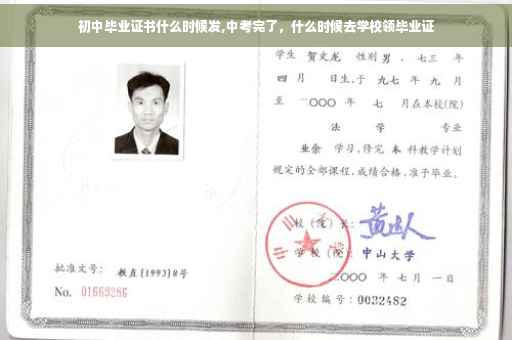 初中毕业证书什么时候发,中考完了，什么时候去学校领毕业证
学生 贺文龙 性别 男 、七三 年
四 月 日生,于 九七 年 九 月
至 二〇〇〇 年 七 月在本校(院)
法 学 专业
业余 学习,修完 本 科教学计划
规定的全部课程,成绩合格,准予毕业。
校 (院) 长:
学 校 (院): 中山大学
批准文号: 教直[1993]8号
二〇〇〇 年 七 月 一 日
No. 01669286
学校编号: 0032482